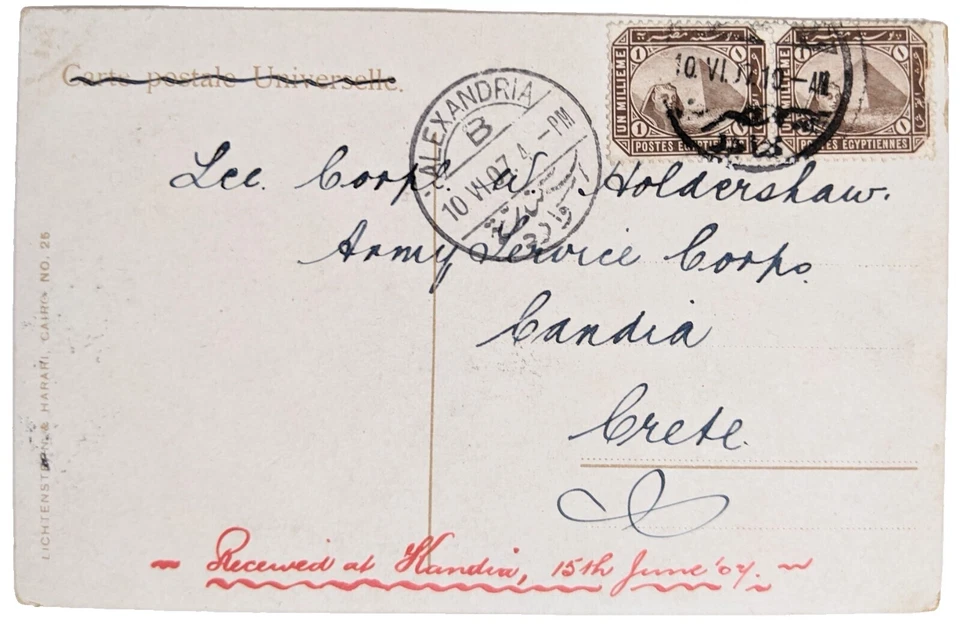 Carte postale Universelle.
ALEXANDRIA
B
10 VI 07 4 - PM
UN MILLIEME
1
1
POSTES EGYPTIENNES
10. VI. 10 - AM
UN MILLIEME
1
1
POSTES EGYPTIENNES
Lce. Corpl. W. Holdershaw.
Army Service Corps
Candia
Crete.
LICHTENSTERN & HARARI, CAIRO NO. 25
Received at Kandia, 15th June '07.